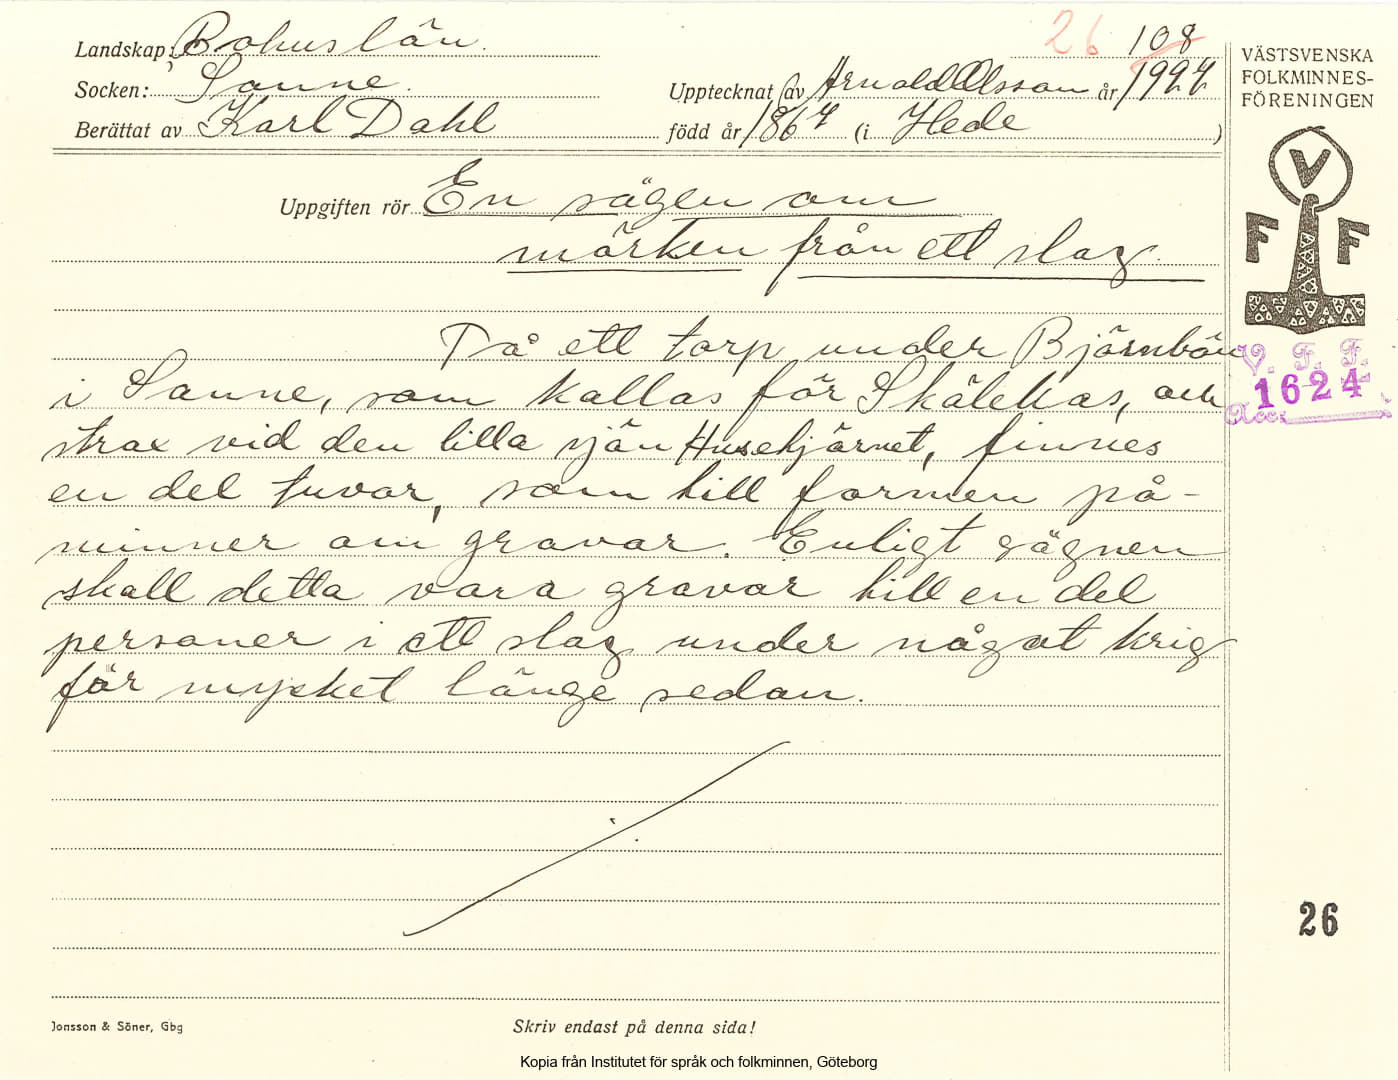 26 108
Landskap: Bohuslän.
Socken: Sanne. Upptecknat av Arnold Olsson år 1927.
Berättat av Karl Dahl född år 1867 (i Hede )
Uppgiften rör En sägen om
märken från ett slag.
På ett torp under Björnbön
i Sanne, som kallas för och
strax vid den lilla sjön Husetjärnet, finnes
en del tuvor, som till formen på-
minner om gravar. Enligt sägnen
skall detta vara gravar till en del
personer i ett slag under något krig
för mycket länge sedan.
VÄSTSVENSKA
FOLKMINNES-
FÖRENINGEN
V
F F
V. F. F.
1624
Acc.
26
Jonsson & Söner, Gbg
Skriv endast på denna sida!
Kopia från Institutet för språk och folkminnen, Göteborg